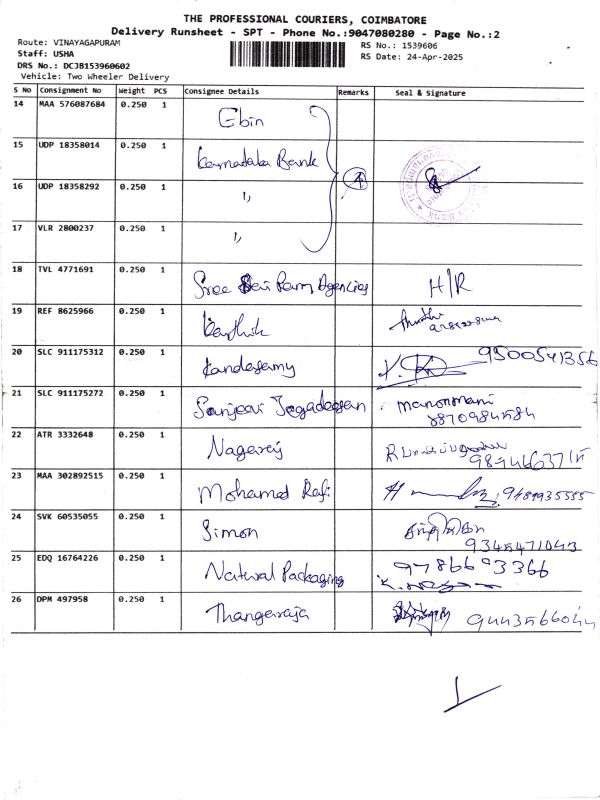 THE PROFESSIONAL COURIERS, COIMBATORE
Delivery Runsheet - SPT - Phone No.:9047080280 - Page No.:2
Route: VINAYAGAPURAM
Staff: USHA
DRS No.: DCJB153960602
Vehicle: Two Wheeler Delivery
RS No.: 1539606
RS Date: 24-Apr-2025
S No Consignment No Weight PCS Consignee Details Remarks Seal & Signature
14 MAA 576087684 0.250 1 Gbin
15 UDP 18358014 0.250 1 Karnadaka Bank
16 UDP 18358292 0.250 1 " 4
17 VLR 2800237 0.250 1 "
18 TVL 4771691 0.250 1 Sree Devi Ram Agencies H/R
19 REF 8625966 0.250 1 Karthik
20 SLC 911175312 0.250 1 Kandasamy 9500541356
21 SLC 911175272 0.250 1 Sanjeevi Jagadeesan manonmani
22 ATR 3332648 0.250 1 Nagaraj
23 MAA 302892515 0.250 1 Mohamed Rafi
24 SVK 60535055 0.250 1 Simon
25 EDQ 16764226 0.250 1 Natural Packaging 9786693366
26 DPM 497958 0.250 1 Thangaraja